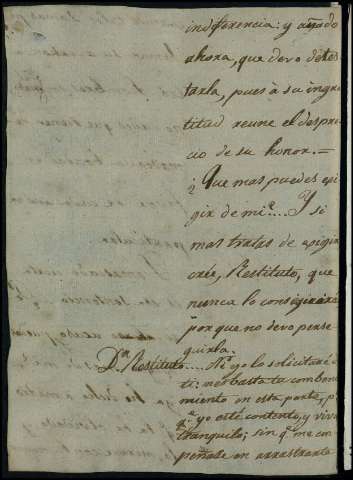 indiferencia: y añado
ahora, que devo detes
tarla, pues à su ingra
titud reune el despre
cio de su honor.—
¿Que mas puedes egi
gir de mi?.... Y si
mas tratas de egigir
crée, Restituto, que
nunca lo conseguirás
porque no devo perse
guirla.
Dn. Restituto.... Ni yo lo solicitaré
ti: me basta tu combenci
miento en esta parte, pa.
qe. yo esté contento, y viva
tranquilo; sin qe. me em
peñase en arrastrarte